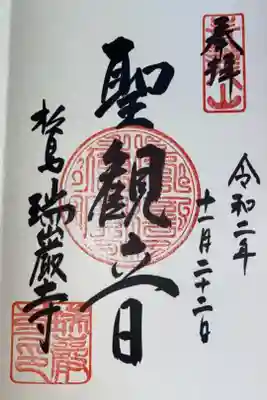 奉拝
令和二年
十一月二十二日
聖観音
松島 瑞巌寺